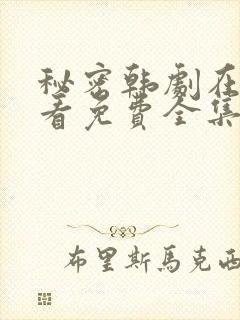 秘密韩劇在
看免費全集
布里斯馬克西